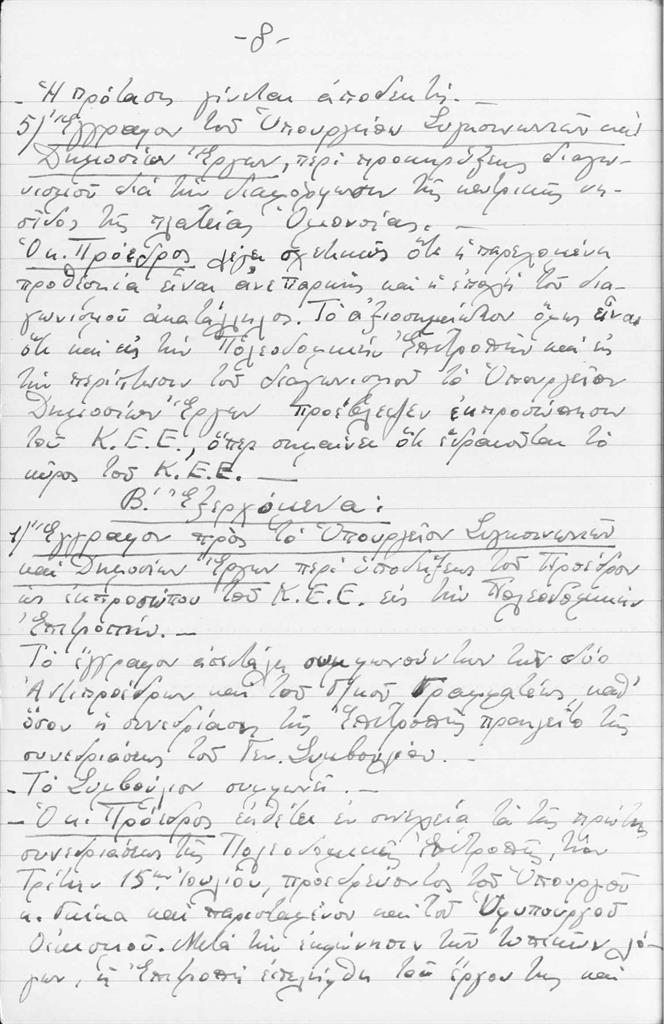 -8-
- Ἡ πρότασις γίνεται ἀποδεκτή. -
5) Ἔγγραφον τοῦ Ὑπουργείου Συγκοινωνιῶν καὶ
Δημοσίων Ἔργων, περὶ προκηρύξεως διαγω-
νισμοῦ διὰ τὴν διαμόρφωσιν τῆς κεντρικῆς νη-
σῖδος τῆς πλατείας Ὁμονοίας. -
Ὁ κ. Πρόεδρος λέγει σχετικῶς ὅτι ἡ παρεχομένη
προθεσμία εἶναι ἀνεπαρκὴς καὶ ἡ ἐποχὴ τοῦ δια-
γωνισμοῦ ἀκατάλληλος. Τὸ ἀξιοσημείωτον ὅμως εἶναι
ὅτι καὶ εἰς τὴν Πολεοδομικὴν Ἐπιτροπὴν καὶ εἰς
τὴν περίπτωσιν τοῦ διαγωνισμοῦ τὸ Ὑπουργεῖον
Δημοσίων Ἔργων προέβλεψεν ἐκπροσώπησιν
τοῦ Κ.Ε.Ε., ὅπερ σημαίνει ὅτι ἑδραιοῦται τὸ
κῦρος τοῦ Κ.Ε.Ε. -
Β.' Ἐξερχόμενα:
1) Ἔγγραφον πρὸς τὸ Ὑπουργεῖον Συγκοινωνιῶν
καὶ Δημοσίων Ἔργων περὶ ὑποδείξεως τοῦ Προέδρου
ὡς ἐκπροσώπου τοῦ Κ.Ε.Ε. εἰς τὴν Πολεοδομικὴν
Ἐπιτροπήν. -
Τὸ ἔγγραφον ἀπεστάλη συμφωνούντων τῶν δύο
Ἀντιπροέδρων καὶ τοῦ Γενικοῦ Γραμματέως, καθ'
ὅσον ἡ συνεδρίασις τῆς Ἐπιτροπῆς προηγεῖτο τῆς
συνεδριάσεως τοῦ Γεν. Συμβουλίου. -
- Τὸ Συμβούλιον συμφωνεῖ. -
- Ὁ κ. Πρόεδρος ἐκθέτει ἐν συνεχείᾳ τὰ τῆς πρώτης
συνεδριάσεως τῆς Πολεοδομικῆς Ἐπιτροπῆς, τὴν
Τρίτην 15ην Ἰουλίου, προεδρεύοντος τοῦ Ὑπουργοῦ
κ. Γκίκα καὶ παρισταμένου καὶ τοῦ Ὑφυπουργοῦ
Οἰκισμοῦ. Μετὰ τὴν ἐκφώνησιν τῶν τυπικῶν λό-
γων, ἡ Ἐπιτροπὴ ἐπελήφθη τοῦ ἔργου της καὶ